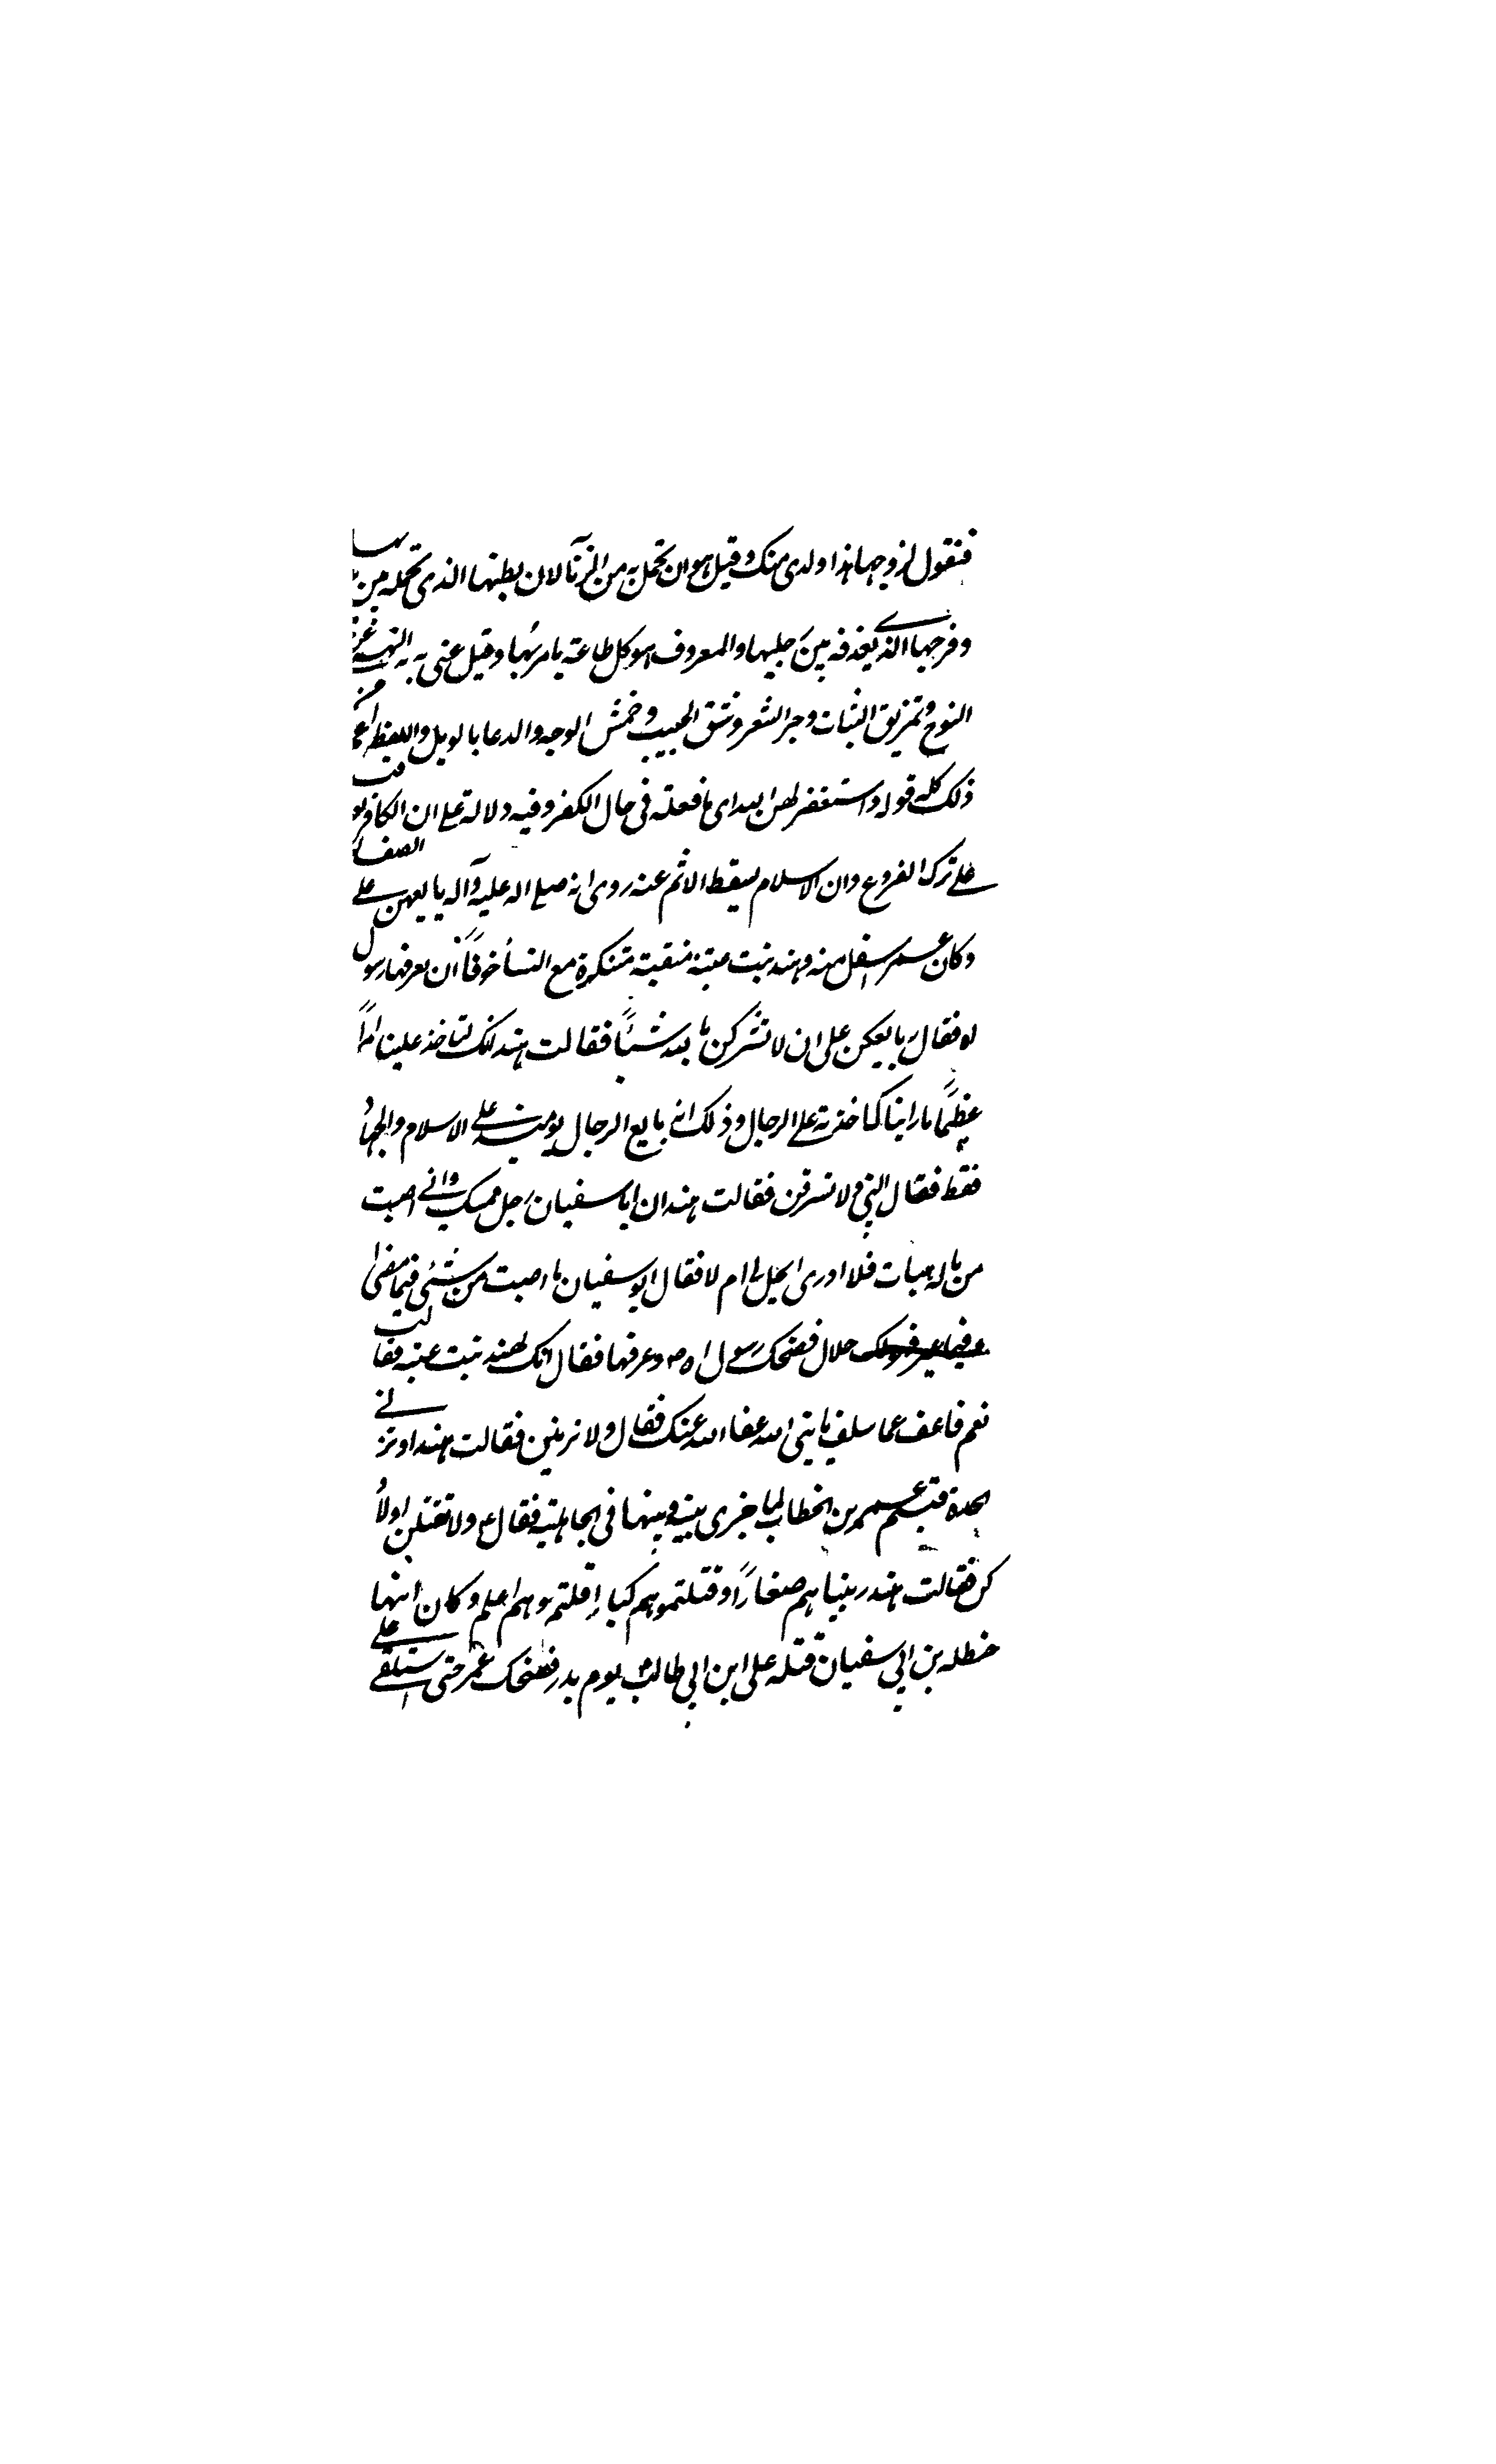 فتقول لزوجها هذا ولدى منك وقيل هو ان تحمل به من الزنآ لان بطنها الذى تحمله بين يديها
وفرجها الذى يقذفه بين رجليها والمعروف هو كل طاعة يامر بها وقيل عنى به النهى عن
النوح وتمزيق الثياب وجز الشعر وشق الجيب وخمش الوجه والدعا بالويل واللفظ اعم من
ذلك كله قوله واستغفر لهن الله اى ما فعلته فى حال الكفر وفيه دلالة على ان الكافر يعاقب
على ترك الفروع وان الاسلام يسقط الاثم عنه روى انه صلى الله عليه وآله بايعهن على الصفا
وكان عمر اسفل منه وهند بنت عتبة متنقبة متنكرة مع النسآ خوفاً ان يعرفها رسول
الله فقال ابايعكن على ان لا تشركن بالله شيئاً فقالت هند انك لتاخذ علينا امراً
عظيماً ما رايناك اخذته على الرجال وذلك انه بايع الرجال يومئذ على الاسلام والجهاد
فقط فقال النبى ولا تسرقن فقالت هند ان ابا سفيان رجل ممسك وانى اصبت
من ماله هنات فلا ادرى ايحل لى ام لا فقال ابو سفيان ما اصبت من شئى فيما مضى
وفيما غبر فهو لك حلال فضحك رسول الله ص وعرفها فقال انك لهند بنت عتبه فقالت
نعم فاعف عما سلف يا نبى الله عفا الله عنك فقال ولا تزنين فقالت هند او تزنى
الحرة فتبسم عمر بن الخطاب لما جرى بينه وبينها فى الجاهلية فقال ع ولا تقتلن اولاد
كن فقالت هند ربيناهم صغاراً وقتلتموهم كبارا قتلتم وهم اعلم وكان ابنها
حنظله بن ابى سفيان قتله على ابن ابى طالب يوم بدر فضحك عمر حتى استلقى على